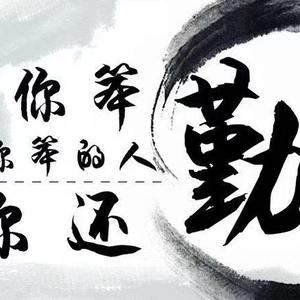 你笨
你笨的人
你还
勤